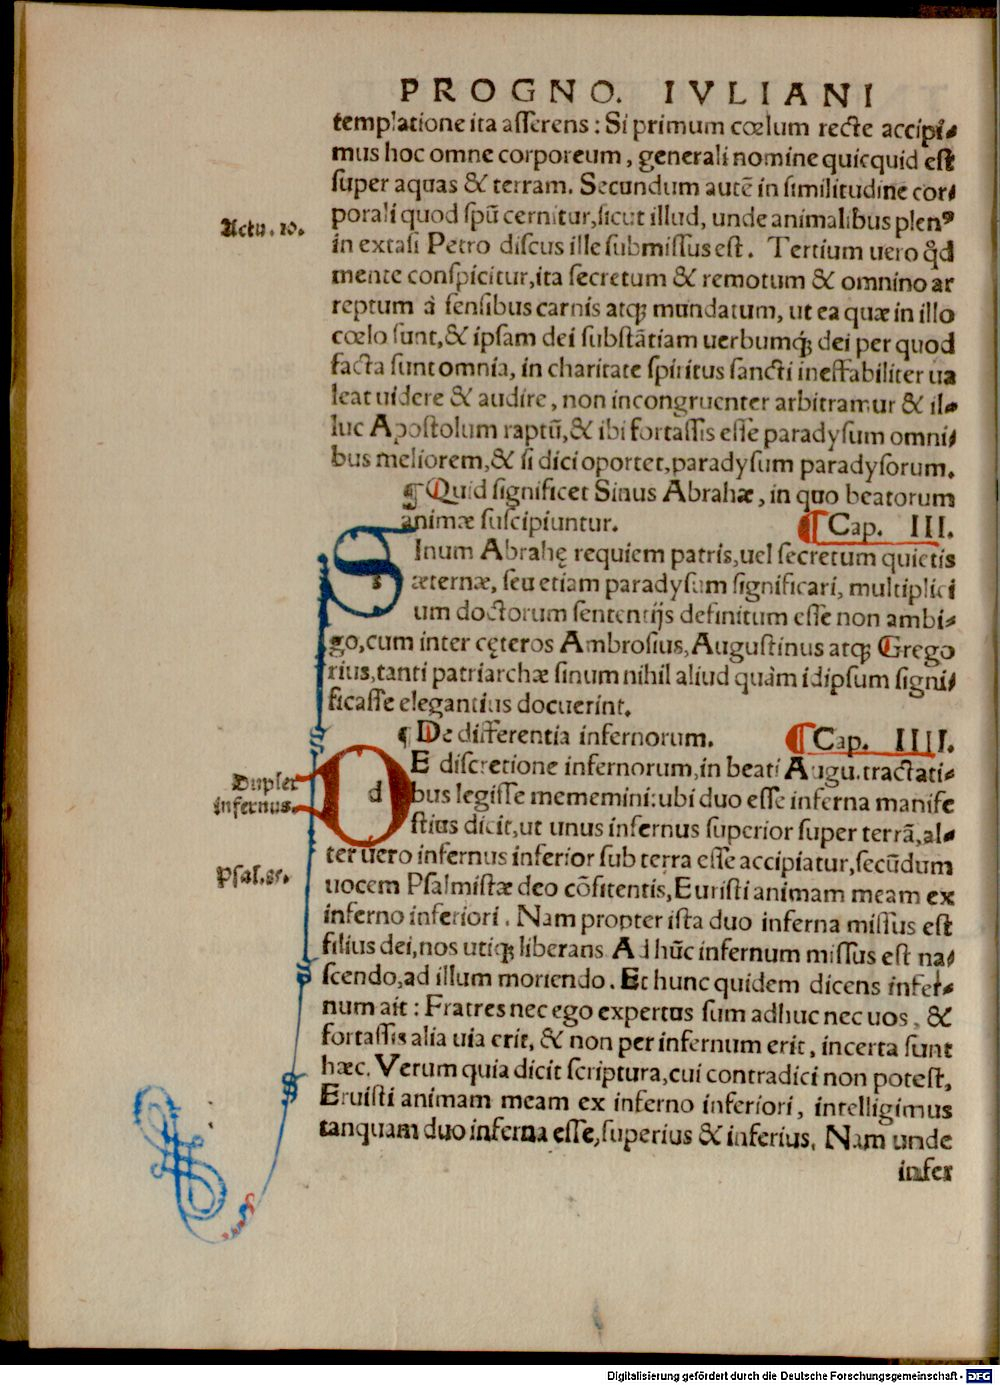 PROGNO. IVLIANI
templatione ita asserens : Si primum cœlum recte accipi-
mus hoc omne corporeum, generali nomine quicquid est
super aquas & terram. Secundum autē in similitudine cor-
Actu. 10.
porali quod spū cernitur, sicut illud, unde animalibus plenꝰ
in extasi Petro discus ille submissus est. Tertium uero qd̄
mente conspicitur, ita secretum & remotum & omnino ar
reptum à sensibus carnis atqꝫ mundatum, ut ea quæ in illo
cœlo sunt, & ipsam dei substātiam uerbumqꝫ́ dei per quod
facta sunt omnia, in charitate spiritus sancti ineffabiliter ua
leat uidere & audire, non incongruenter arbitramur & il-
luc Apostolum raptū, & ibi fortassis esse paradysum omni-
bus meliorem, & si dici oportet, paradysum paradysorum.
¶ Quid significet Sinus Abrahæ, in quo beatorum
animæ suscipiuntur. ¶ Cap. III.
SInum Abrahę requiem patris, uel secretum quietis
æternæ, seu etiam paradysum significari, multiplici
um doctorum sententijs definitum esse non ambi-
go, cum inter cęteros Ambrosius, Augustinus atqꝫ Grego
rius, tanti patriarchæ sinum nihil aliud quàm idipsum signi-
ficasse elegantius docuerint.
¶ De differentia infernorum. ¶ Cap. IIII.
Duplex
infernus.
DE discretione infernorum, in beati Augu. tractati-
bus legisse mememini: ubi duo esse inferna manife
stius dicit, ut unus infernus superior super terrā, al-
ter uero infernus inferior sub terra esse accipiatur, secūdum
Psal. 85.
uocem Psalmistæ deo cōfitentis, Euristi animam meam ex
inferno inferiori. Nam propter ista duo inferna missus est
filius dei, nos utiqꝫ liberans. Ad hūc infernum missus est na-
scendo, ad illum moriendo. Et hunc quidem dicens infer-
num ait : Fratres nec ego expertus sum adhuc nec uos, &
fortassis alia uia erit, & non per infernum erit, incerta sunt
hæc. Verum quia dicit scriptura, cui contradici non potest,
Eruisti animam meam ex inferno inferiori, intelligimus
tanquam duo inferna esse, superius & inferius. Nam unde
infer
Digitalisierung gefördert durch die Deutsche Forschungsgemeinschaft - DFG